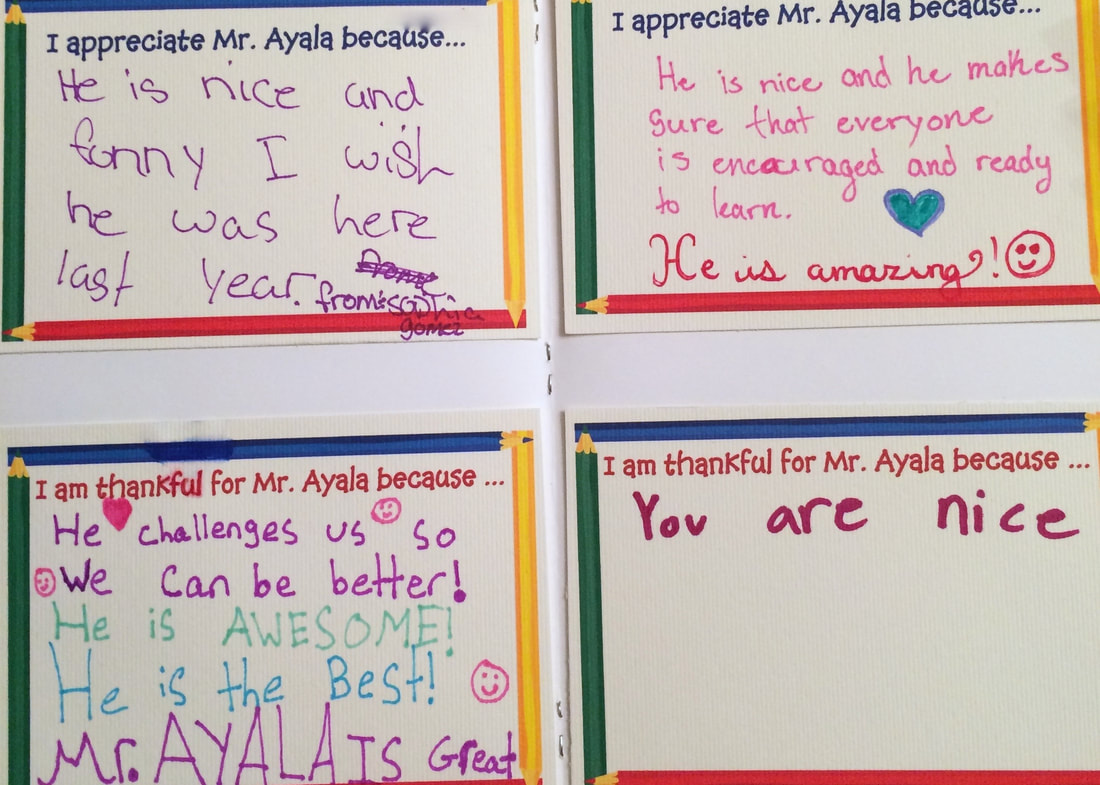 I appreciate Mr. Ayala because...
He is nice and
fonny I wish
he was here
last year.
from: sophia
gomez
I appreciate Mr. Ayala because...
He is nice and he makes
sure that everyone
is encouraged and ready
to learn.
He is amazing!
I am thankful for Mr. Ayala because ...
He challenges us so
We can be better!
He is AWESOME!
He is the Best!
Mr. AYALA IS Great
I am thankful for Mr. Ayala because ...
You are nice